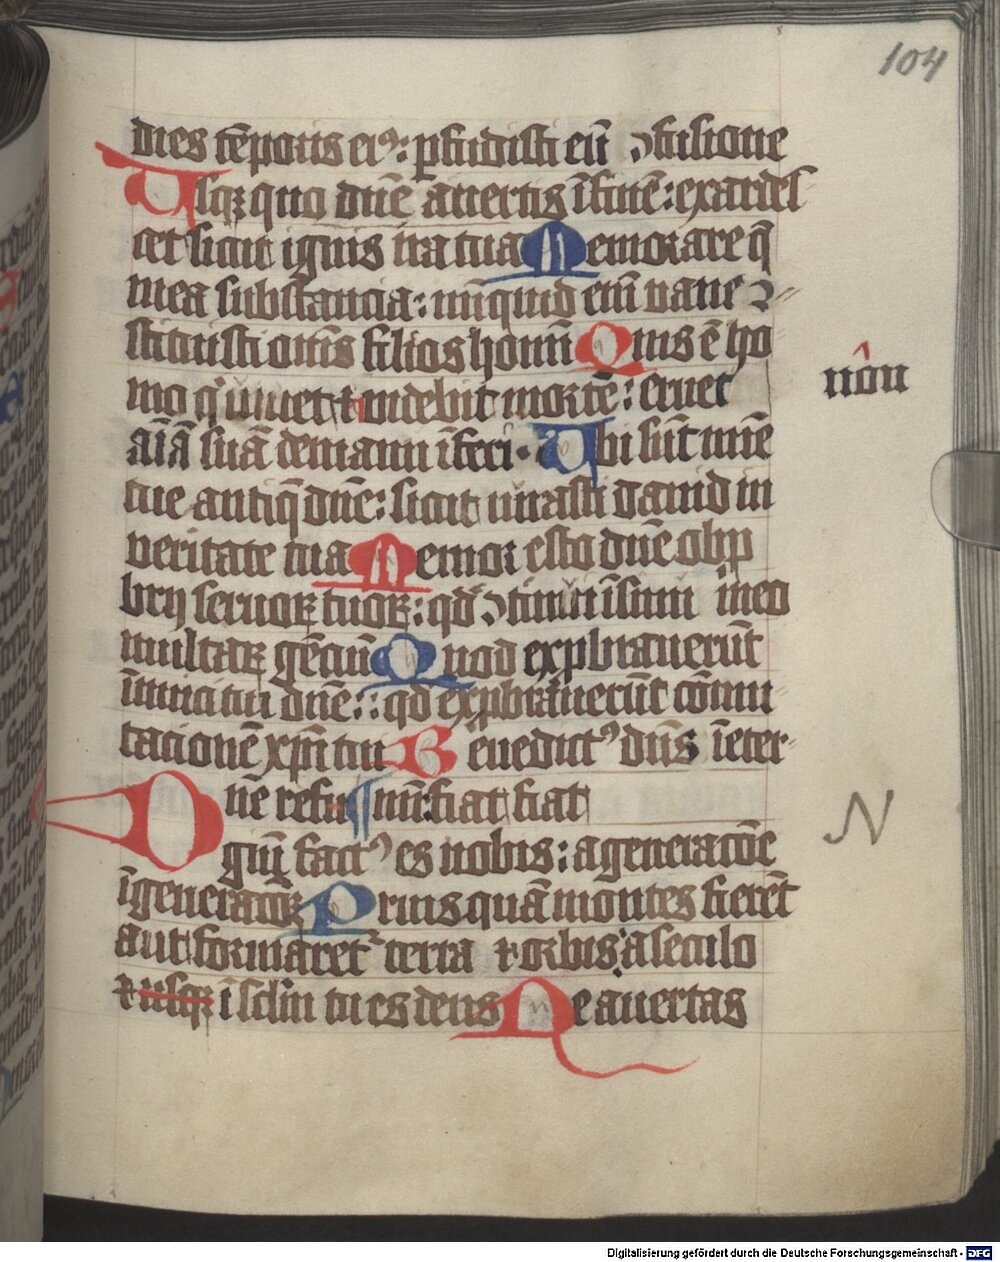 104
dies tēporis eiꝰ: ꝑfudisti eū ↄfusione
Usqꝫ quo dn̄e auertis ī finē: exardes
cet sicut ignis ira tua Memorare q̄
mea substancia: nūquid eī vane ↄ
stituisti om̄s filios homī Quis ē ho
mo q̇ viuet ⁊ nō videbit mortē: eruet
aīā suā de manu īferi. Ubi sūt mīe
tue antiq̄ dn̄e: sicut iurasti dauid in
veritate tua Memor esto dn̄e obꝓ
brij seruoꝝ tuoꝝ: qd̄ ↄtinui ī sinu meo
multaꝝ gēciū Quod exꝓbrauerūt
īimici tui dn̄e: qd̄ exꝓbrauerūt cōmu
tacionē xp̄i tui Benedictꝰ dn̄s ī eter
Dn̄e refu ¶ nū: fiat fiat
N
giū factꝰ es nobis: a generacōe
ī generacōꝫ Priusquā montes fierēt
aut formaret᷑ terra ⁊ orbis a seculo
⁊ usqꝫ ī sclm̄ tu es deus Ne auertas
Digitalisierung gefördert durch die Deutsche Forschungsgemeinschaft - DFG